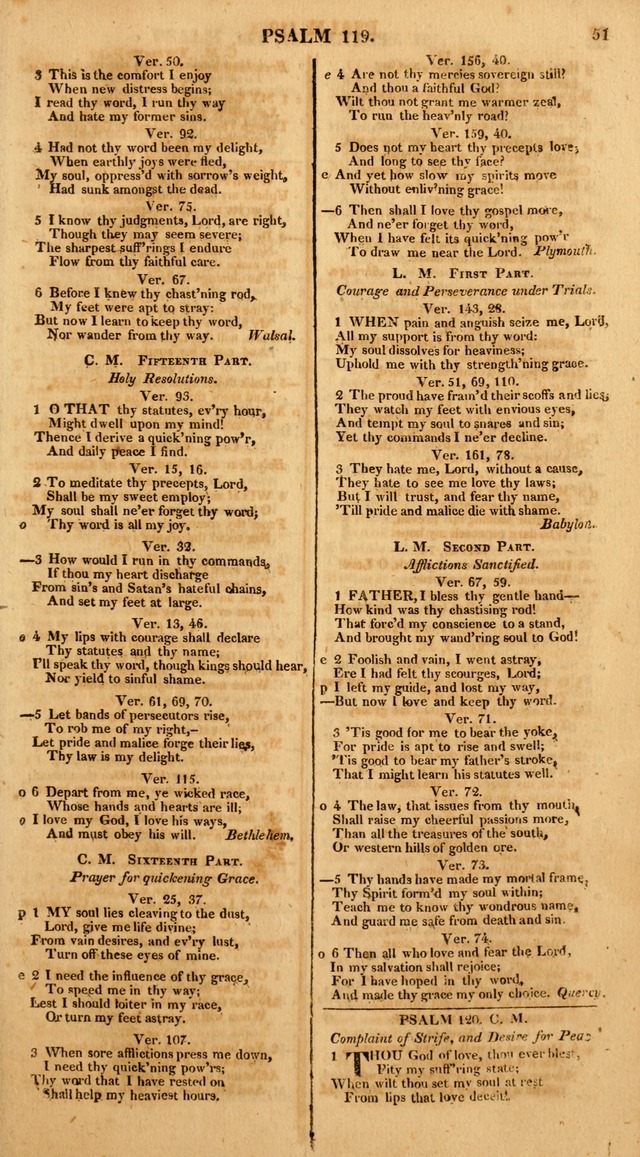 PSALM 119.
51
Ver. 50.
3 This is the comfort I enjoy
When new distress begins;
I read thy word, I run thy way
And hate my former sins.
Ver. 92.
4 Had not thy word been my delight,
When earthly joys were fled,
My soul, oppress'd with sorrow's weight,
Had sunk amongst the dead.
Ver. 75.
5 I know thy judgments, Lord, are right,
Though they may seem severe;
The sharpest suff'rings I endure
Flow from thy faithful care.
Ver. 67.
6 Before I knew thy chast'ning rod,
My feet were apt to stray:
But now I learn to keep thy word,
Nor wander from thy way. Walsal.
C. M. Fifteenth Part.
Holy Resolutions.
Ver. 93.
1 O THAT thy statutes, ev'ry hour,
Might dwell upon my mind!
Thence I derive a quick'ning pow'r,
And daily peace I find.
Ver. 15, 16.
2 To meditate thy precepts, Lord,
Shall be my sweet employ;
My soul shall ne'er forget thy word;
o Thy word is all my joy.
Ver. 32.
—3 How would I run in thy commands,
If thou my heart discharge
From sin's and Satan's hateful chains,
And set my feet at large.
Ver. 13, 46.
o 4 My lips with courage shall declare
Thy statutes and thy name;
I'll speak thy word, though kings should hear,
Nor yield to sinful shame.
Ver. 61, 69, 70.
—5 Let bands of persecutors rise,
To rob me of my right,–
Let pride and malice forge their lies,
Thy law is my delight.
Ver. 115.
o 6 Depart from me, ye wicked race,
Whose hands and hearts are ill;
o I love my God, I love his ways,
And must obey his will. Bethlehem.
C. M. Sixteenth Part.
Prayer for quickening Grace.
Ver. 25, 37.
p 1 MY soul lies cleaving to the dust,
Lord, give me life divine;
From vain desires, and ev'ry lust,
Turn off these eyes of mine.
e 2 I need the influence of thy grace,
To speed me in thy way;
Lest I should loiter in my race,
Or turn my feet astray.
Ver. 107.
3 When sore afflictions press me down,
I need thy quick'ning pow'rs;
Thy word that I have rested on
Shall help my heaviest hours.
Ver. 156, 40.
e 4 Are not thy mercies sovereign still?
And thou a faithful God?
Wilt thou not grant me warmer zeal,
To run the heav'nly road?
Ver. 159, 40.
5 Does not my heart thy precepts love;
And long to see thy face?
e And yet how slow my spirits move
Without enliv'ning grace!
—6 Then shall I love thy gospel more,
And ne'er forget thy word,
When I have felt its quick'ning pow'r
To draw me near the Lord. Plymouth.
L. M. First Part.
Courage and Perseverance under Trials.
Ver. 143, 28.
1 WHEN pain and anguish seize me, Lord,
All my support is from thy word:
My soul dissolves for heaviness;
Uphold me with thy strength'ning grace.
Ver. 51, 69, 110.
2 The proud have fram'd their scoffs and lies;
They watch my feet with envious eyes,
And tempt my soul to snares and sin;
Yet thy commands I ne'er decline.
Ver. 161, 78.
3 They hate me, Lord, without a cause,
They hate to see me love thy laws;
But I will trust, and fear thy name,
'Till pride and malice die with shame.
Babylon.
L. M. Second Part.
Afflictions Sanctified.
Ver. 67, 59.
1 FATHER, I bless thy gentle hand—
How kind was thy chastising rod!
That forc'd my conscience to a stand,
And brought my wand'ring soul to God!
e 2 Foolish and vain, I went astray,
Ere I had felt thy scourges, Lord;
p I left my guide, and lost my way,
—But now I love and keep thy word.
Ver. 71.
3 'Tis good for me to bear the yoke,
For pride is apt to rise and swell;
'Tis good to bear my father's stroke,
That I might learn his statutes well.
Ver. 72.
o 4 The law, that issues from thy mouth,
Shall raise my cheerful passions more,
Than all the treasures of the south,
Or western hills of golden ore.
Ver. 73.
—5 Thy hands have made my mortal frame,
Thy Spirit form'd my soul within;
Teach me to know thy wondrous name,
And guard me safe from death and sin.
Ver. 74.
o 6 Then all who love and fear the Lord,
In my salvation shall rejoice;
For I have hoped in thy word,
And made thy grace my only choice. Quercy.
PSALM 120. C. M.
Complaint of Strife, and Desire for Peac
1 THOU God of love, thou ever blest,
Pity my suff'ring state;
When wilt thou set my soul at rest
From lips that love deceit!